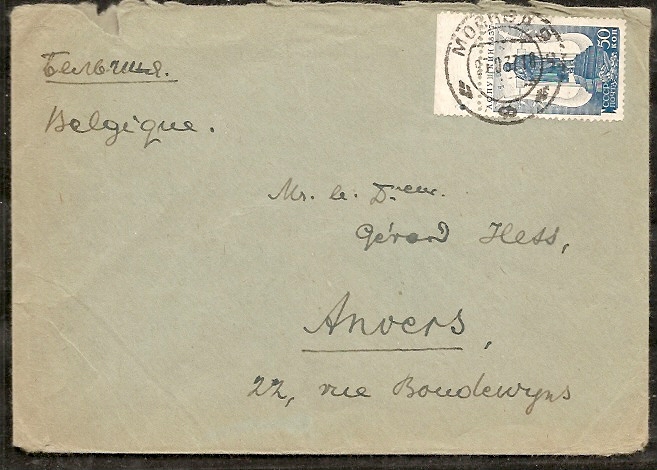 Бельгия.
Belgique.
МОСКВА
50
КОП
СССР
ПОЧТА
Mr. le Dreur.
Gérard Hess,
Anvers,
22, rue Boudewyns